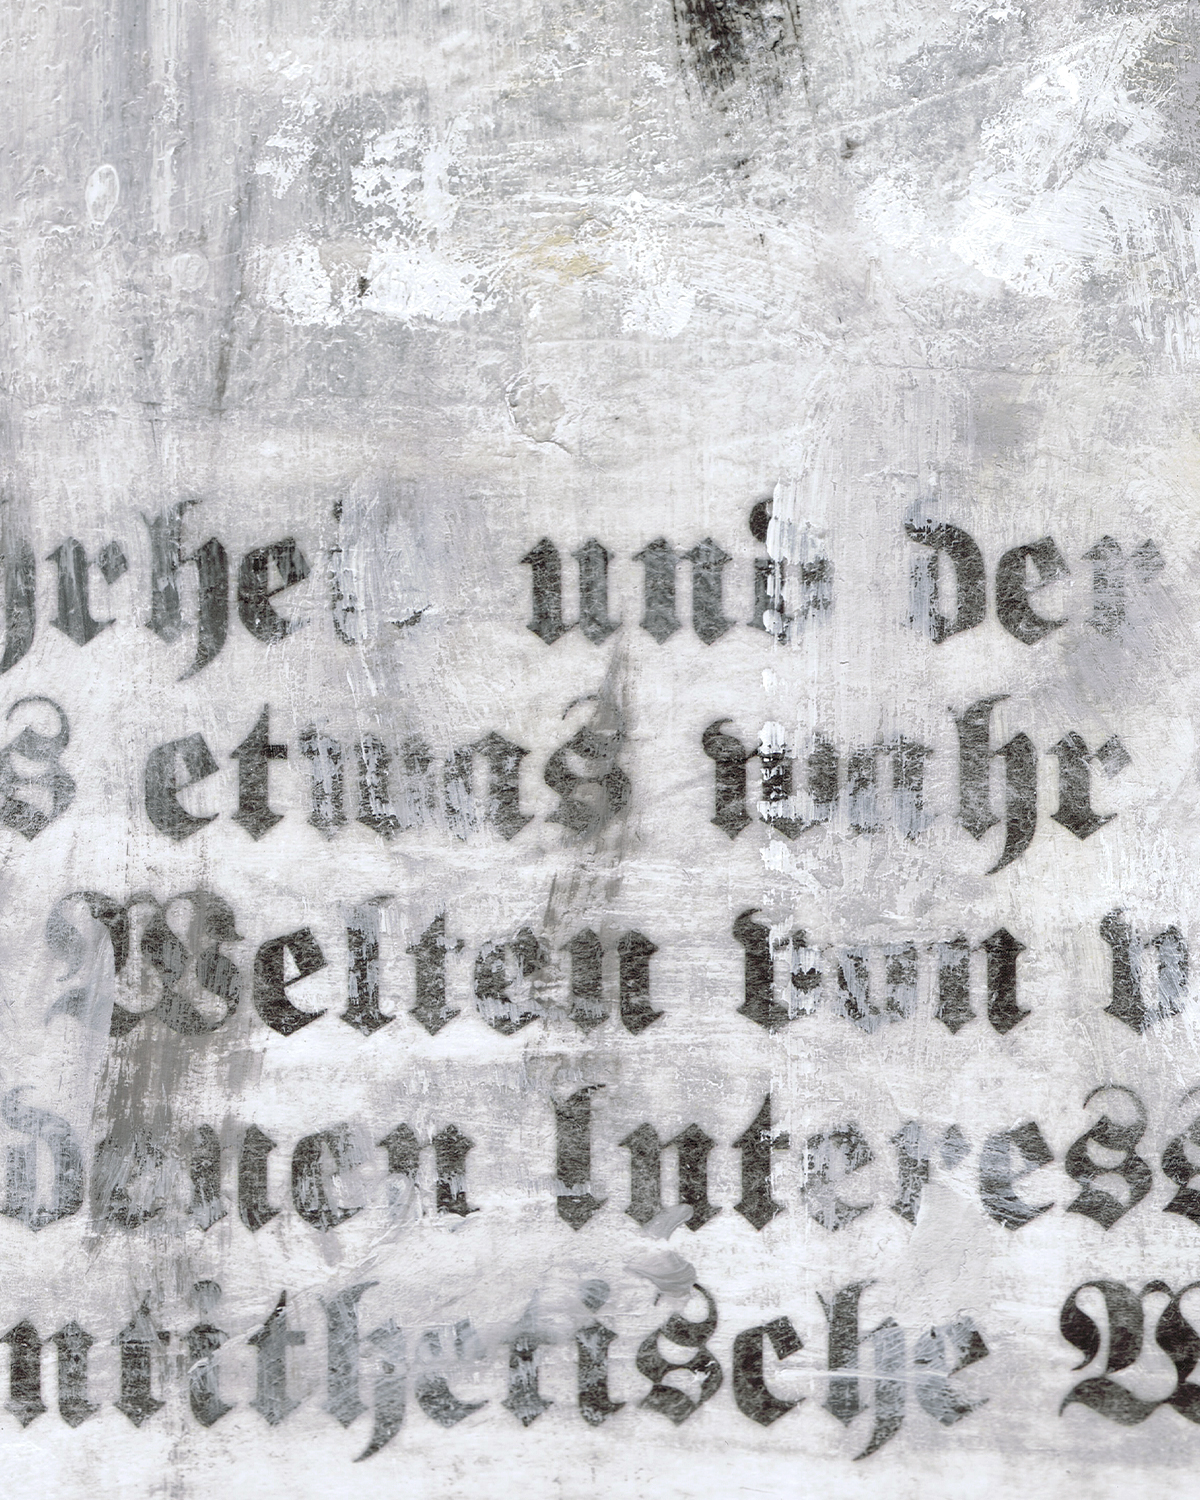 und der
s etwas wahr
Welten von
denen Interess
ntitherische